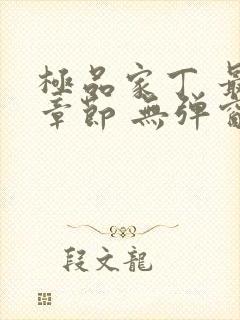 極品家丁 最
章節 無弹窗
段文龍